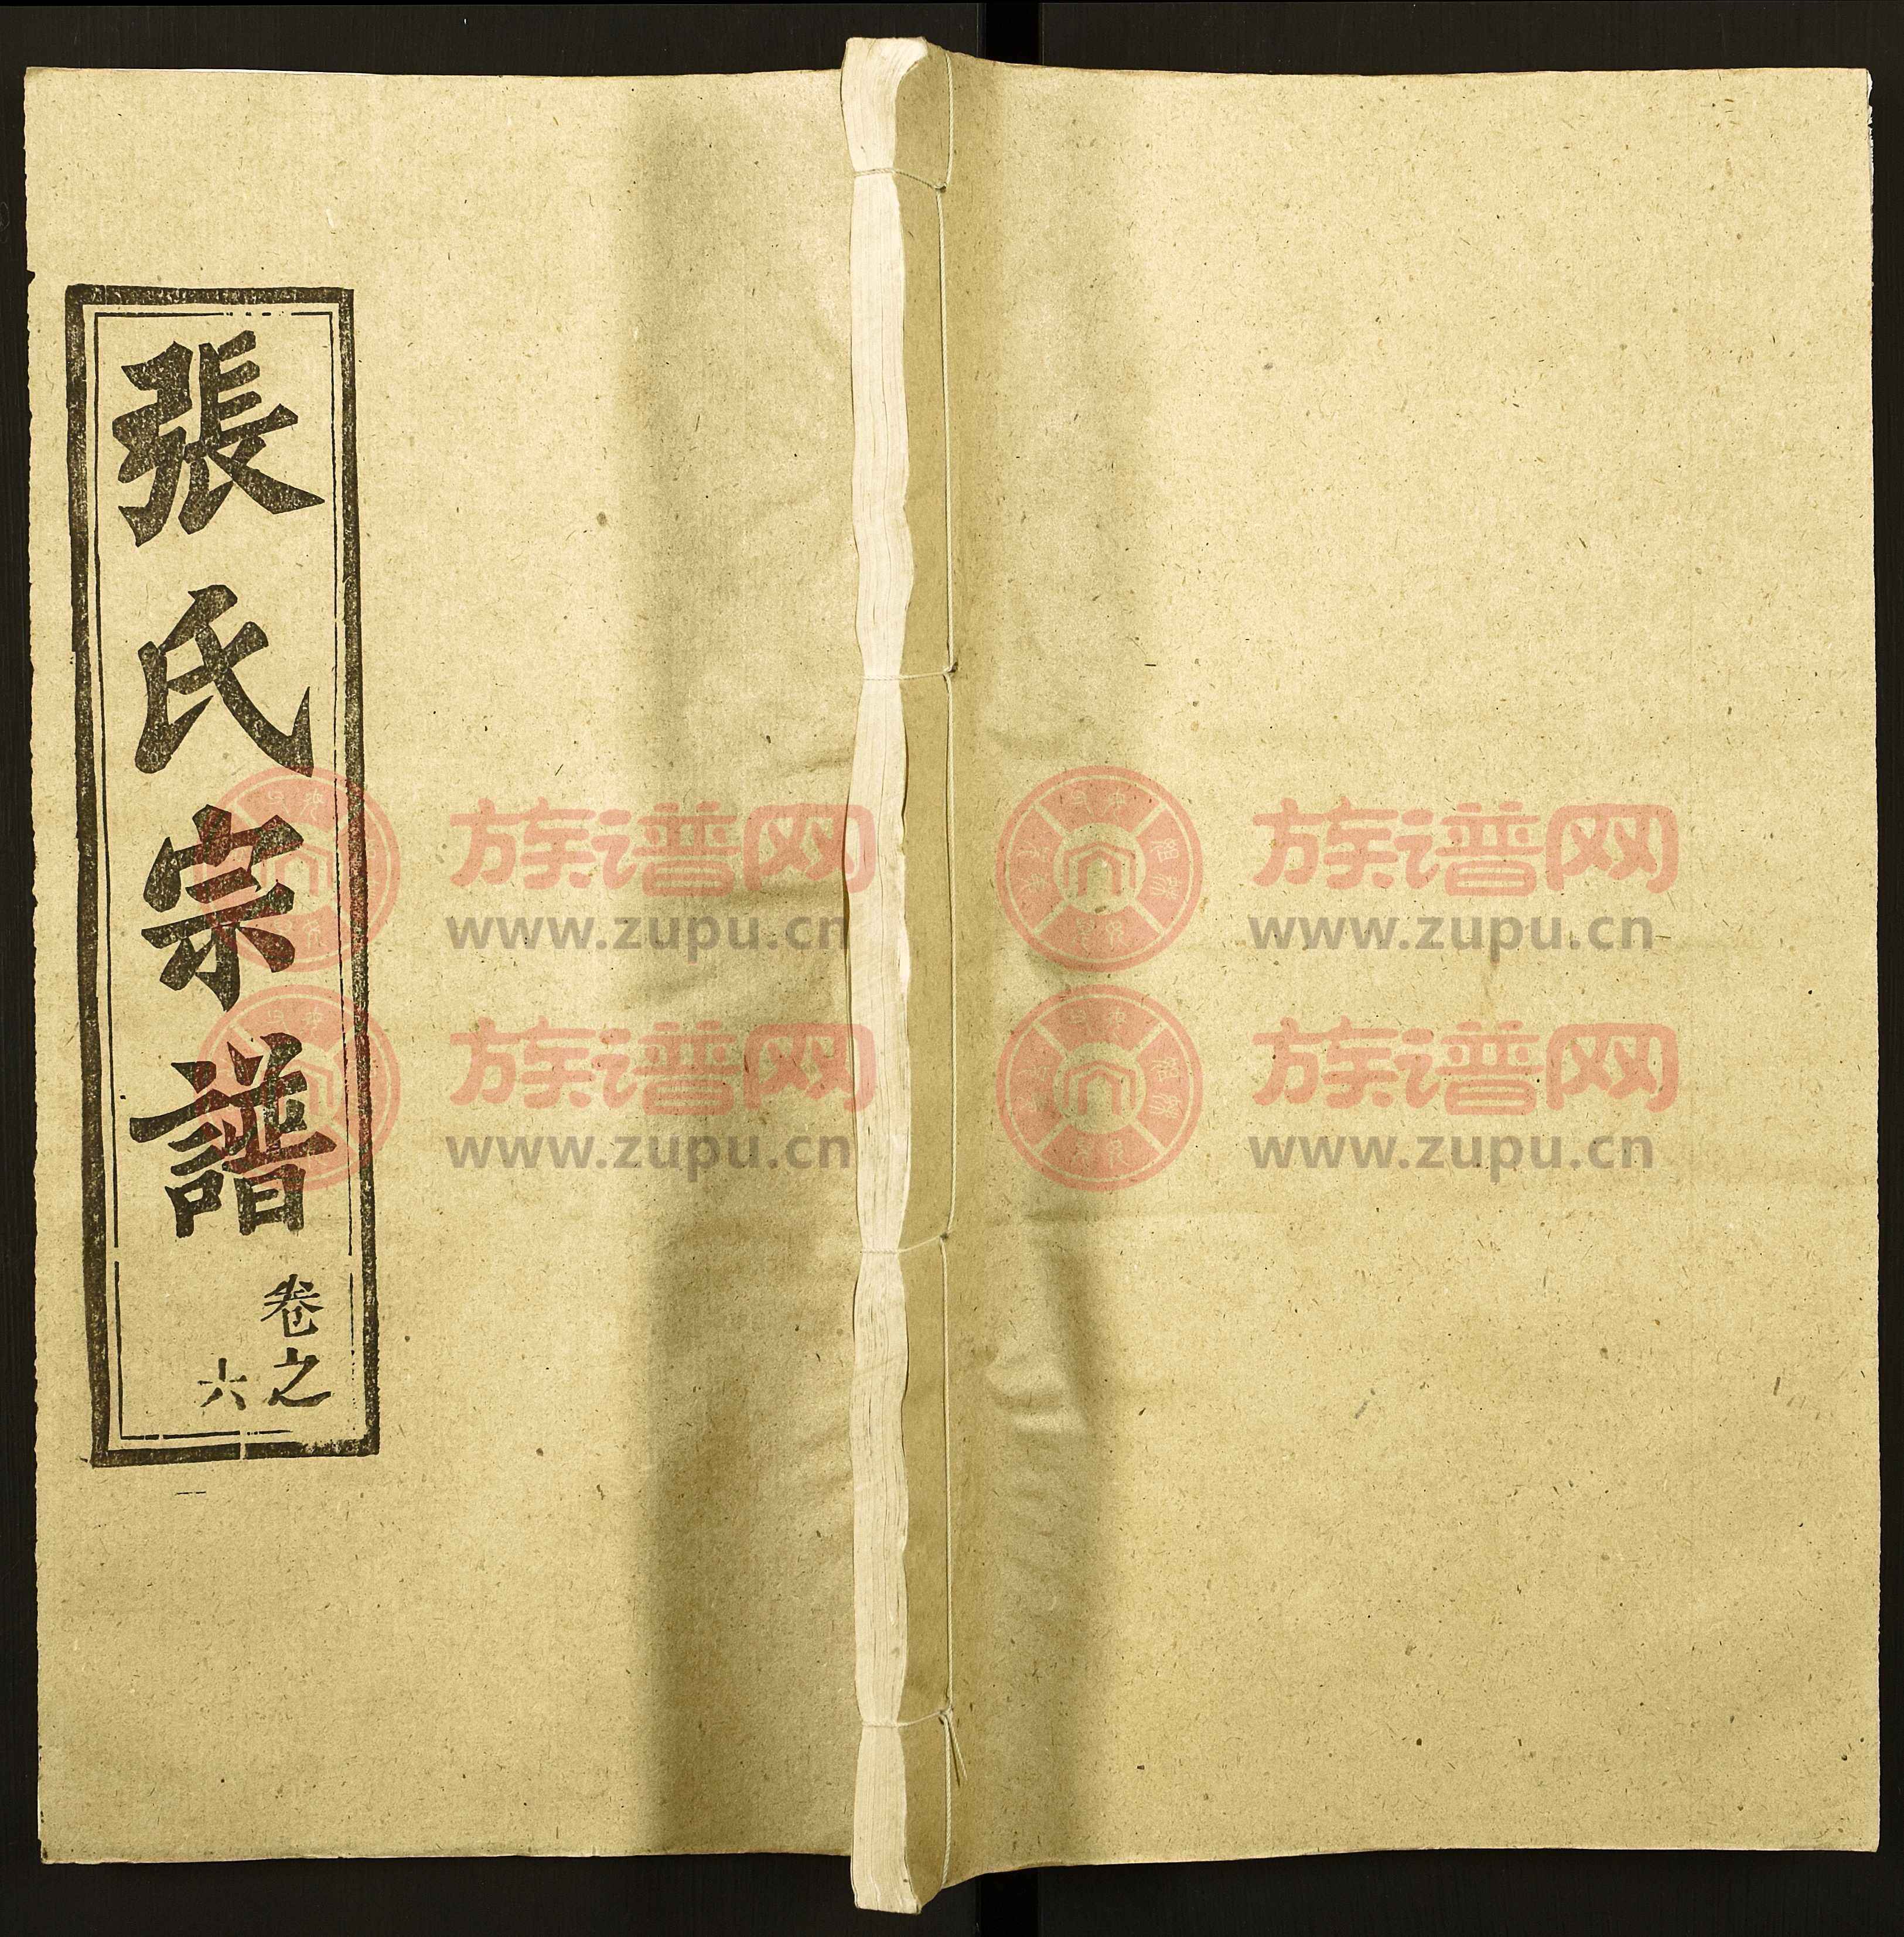 張氏宗譜
卷之
六
族谱网
www.zupu.cn
族谱网
www.zupu.cn
族谱网
www.zupu.cn
族谱网
www.zupu.cn